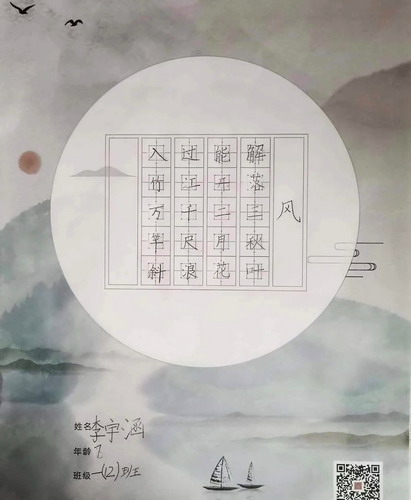 风
解落三秋叶
能开二月花
过江千尺浪
入竹万竿斜
姓名 李宇涵
年龄 7
班级 一(12)班